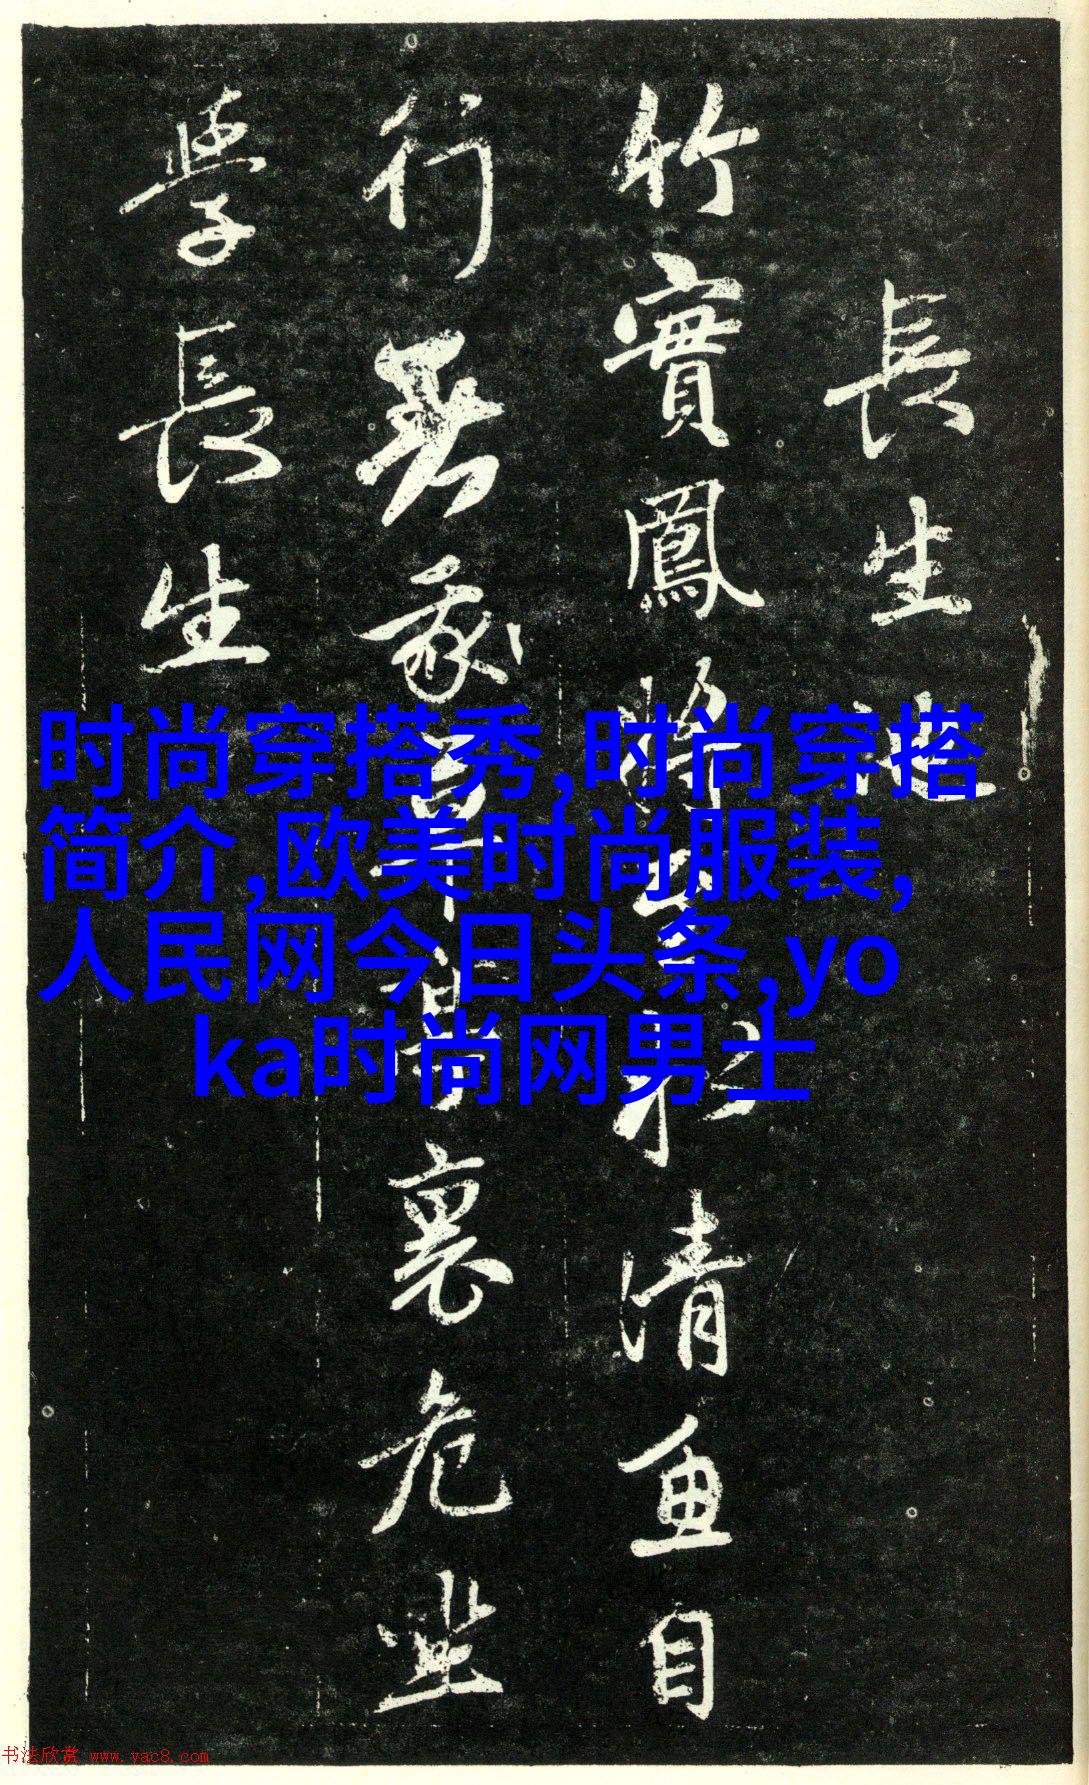 長生
竹實鳳清魚自
行裏危坐
學長生
时尚穿搭秀,时尚穿搭
简介,欧美时尚服装,
人民网今日头条,yo
ka时尚网男士
书法欣赏 www.yac8.com